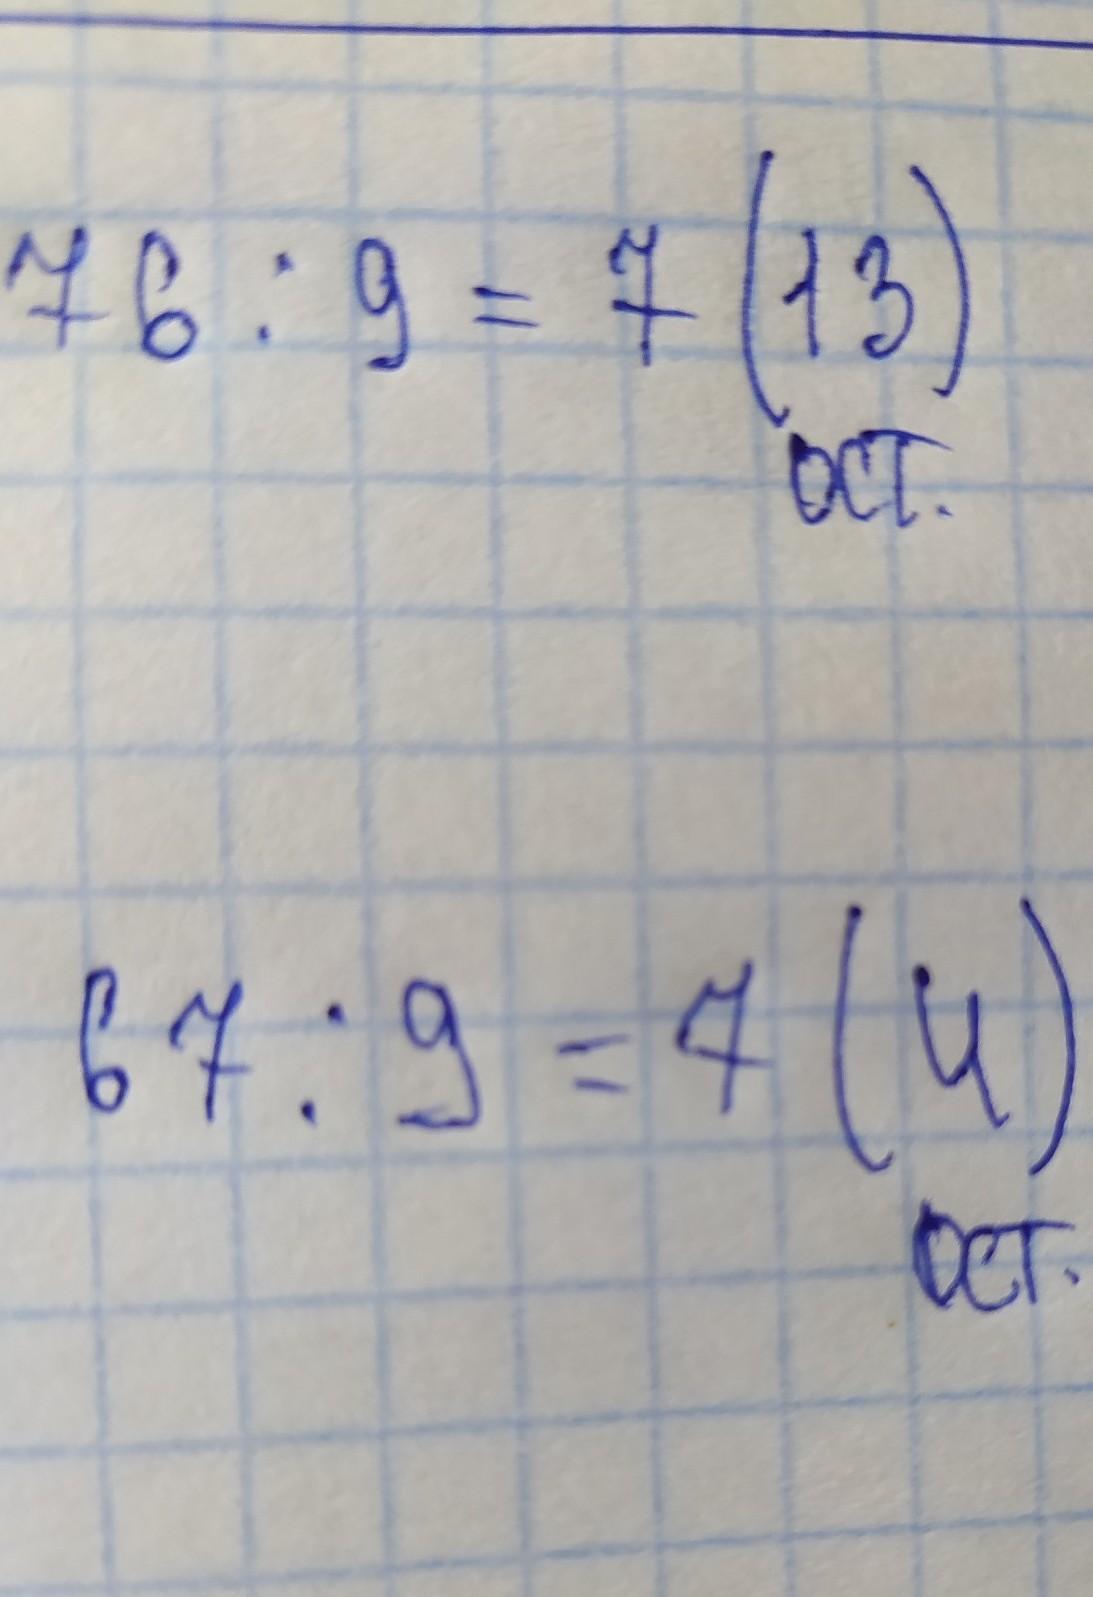 76 : 9 = 7 (13)
ост.
67 : 9 = 7 (4)
ост.